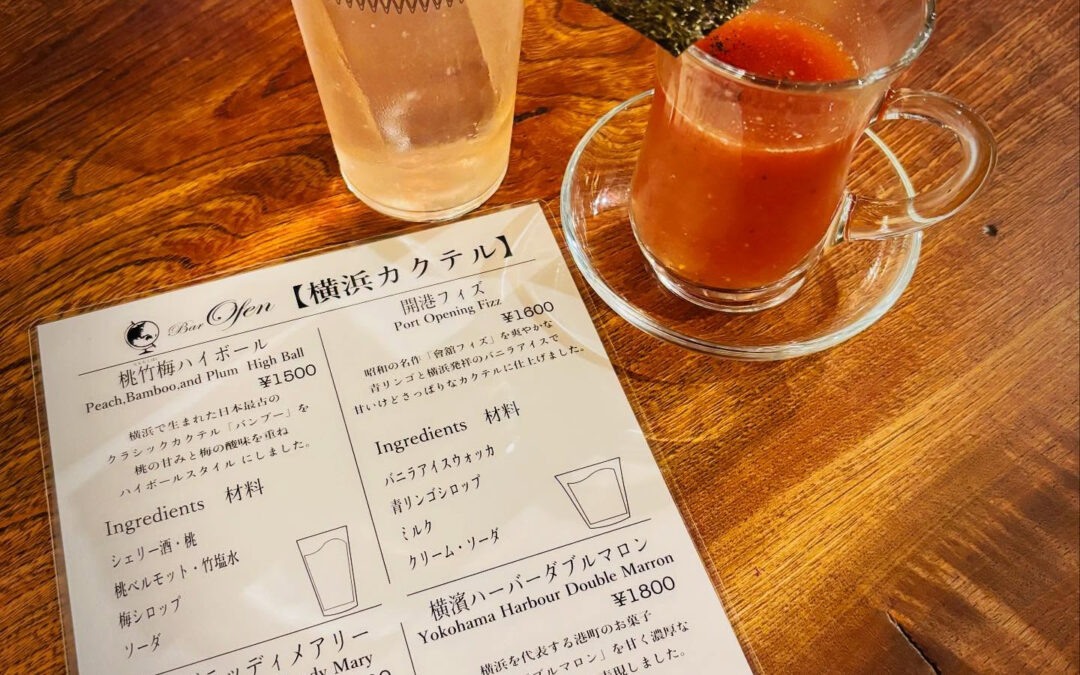 Bar Ofen 【横浜カクテル】
桃竹梅ハイボール
Peach,Bamboo,and Plum High Ball
¥1500
横浜で生まれた日本最古の
クラシックカクテル「バンブー」を
桃の甘みと梅の酸味を重ね
ハイボールスタイルにしました。
Ingredients 材料
シェリー酒・桃
桃ベルモット・竹塩水
梅シロップ
ソーダ
開港フィズ
Port Opening Fizz
¥1600
昭和の名作「會舘フィズ」を爽やかな
青リンゴと横浜発祥のバニラアイスで
甘いけどさっぱりなカクテルに仕上げました。
Ingredients 材料
バニラアイスウォッカ
青リンゴシロップ
ミルク
クリーム・ソーダ
ッディメアリー
dy Mary
横濱ハーバーダブルマロン
Yokohama Harbour Double Marron
¥1800
横浜を代表する港町のお菓子
ブルマロン」を甘く濃厚な
表現しました。